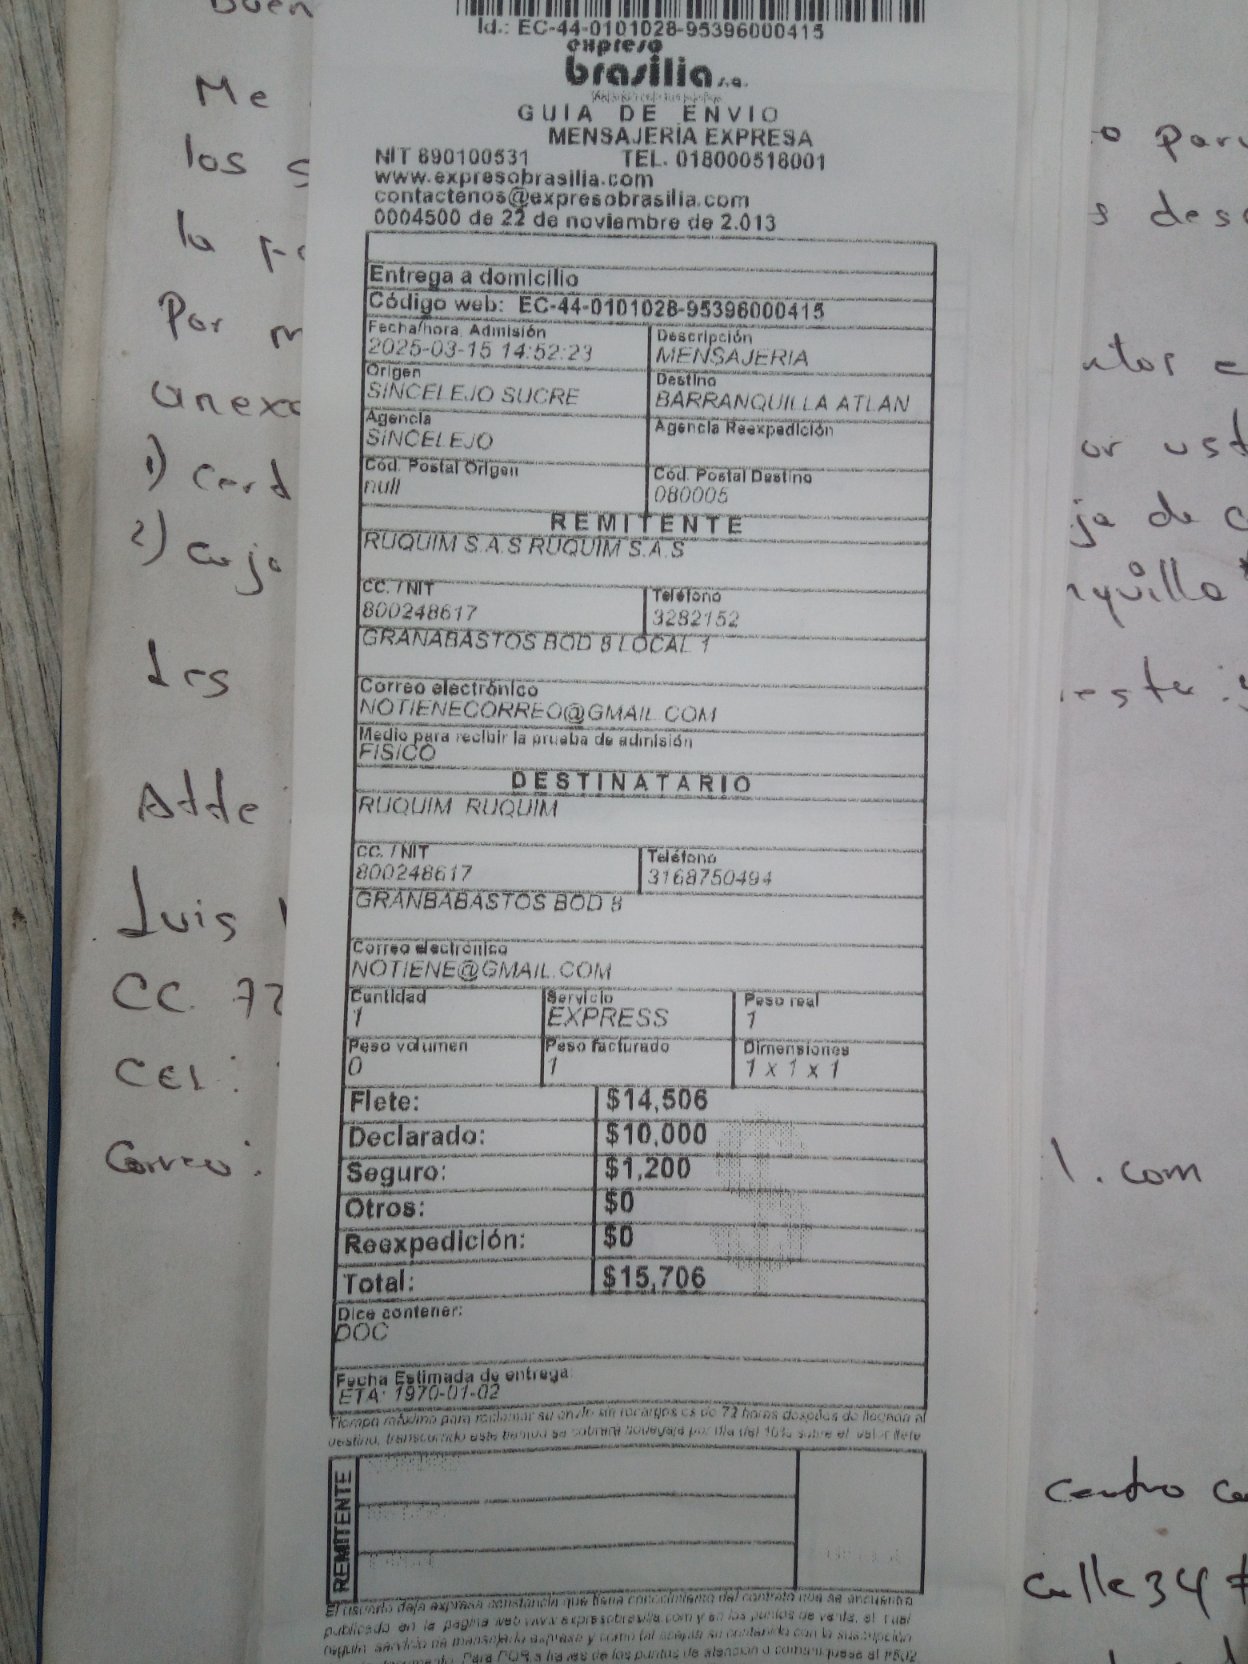 Buen
Me
los s
la
Por m
anexo
1) Card
2) caja
Les
Atte
Luis
CC. 72
CEL:
Correo:
Id.: EC-44-0101028-95396000415
expreso
brasilia s.a.
GUIA DE ENVIO
MENSAJERIA EXPRESA
NIT 890100531 TEL. 018000518001
www.expresobrasilia.com
contactenos@expresobrasilia.com
0004500 de 22 de noviembre de 2.013
Entrega a domicilio
Código web: EC-44-0101028-95396000415
Fecha/hora Admisión Descripción
2025-03-15 14:52:23 MENSAJERIA
Origen Destino
SINCELEJO SUCRE BARRANQUILLA ATLAN
Agencia Agencia Reexpedición
SINCELEJO
Cód. Postal Origen Cód. Postal Destino
null 080005
REMITENTE
RUQUIM S.A.S RUQUIM S.A.S
CC. / NIT Teléfono
800248617 3282152
GRANABASTOS BOD 8 LOCAL 1
Correo electrónico
NOTIENECORREO@GMAIL.COM
Medio para recibir la prueba de admisión
FISICO
DESTINATARIO
RUQUIM RUQUIM
CC. / NIT Teléfono
800248617 3168750494
GRANBABASTOS BOD 8
Correo electrónico
NOTIENE@GMAIL.COM
Cantidad Servicio Peso real
1 EXPRESS 1
Peso volumen Peso facturado Dimensiones
0 1 1 x 1 x 1
Flete: $14,506
Declarado: $10,000
Seguro: $1,200
Otros: $0
Reexpedición: $0
Total: $15,706
Dice contener:
DOC
Fecha Estimada de entrega:
ETA: 1970-01-02
Tiempo máximo para reclamar su envío sin recargos es de 72 horas después de llegada al
destino, transcurrido este tiempo se cobrará bodegaje por día del 10% sobre el valor flete
REMITENTE
El usuario deja expresa constancia que tiene conocimiento del contrato que se encuentra
publicado en la pagina web www.expresobrasilia.com y en los puntos de venta, el cual
regula servicio de mensajería expresa y como tal acepta su contenido con la suscripción
Para PQR a través de los puntos de atención o comuníquese al #502
o par
s des
or ust
ja de c
quilla
este
l.com
centro co
calle 34 #